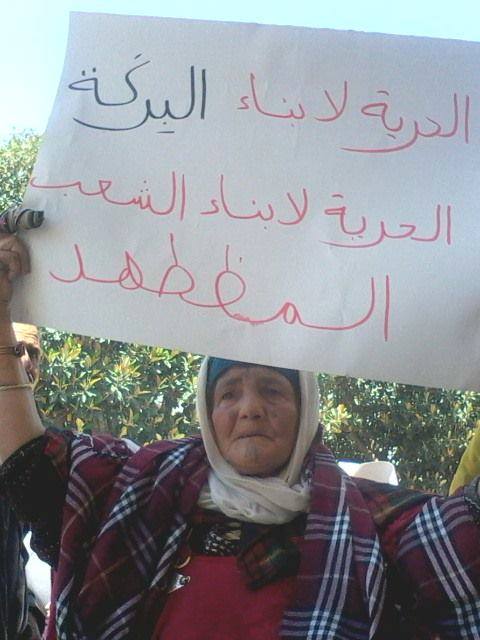 الحرية لابناء البركَة
الحرية لابناء الشعب
المظطهد